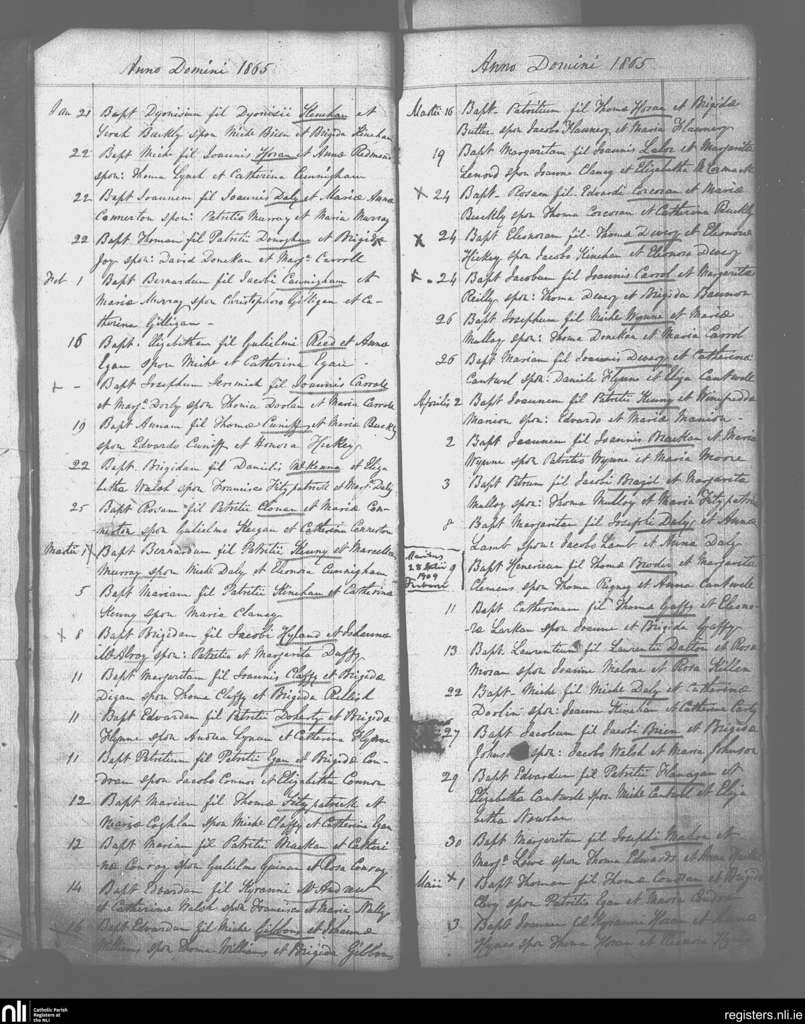 Anno Domini 1865
Jan 21 Bapt Dyonisium fil Dyonisii Kinahan et
Sarah Buckly spon Miche Brien et Brigida Kinahan
22 Bapt Miche fil Joannis Horan et Anna Redmond
spon: Thoma Lynch et Catherina Cunnigham
22 Bapt Joannem fil Joannis Daly et Mariæ Anna
Comerton spon: Patritio Murray et Maria Murray
22 Bapt Thomam fil Patritii Donoghue et Brigida
Joy spon: David Donelan et Margt Carroll
Feb 1 Bapt Bernardum fil Jacobi Cunnigham et
Mariæ Murray spon Christophoro Gilligan et Ca-
therina Gilligan -
16 Bapt. Elizabitham fil Gulielmi Reed et Anna
Egan spon Miche et Catherina Egan -
x - Bapt Josephum Jeremiah fil Joannis Carroll
et Margt Dorly spon Thoma Doolan et Maria Carroll
19 Bapt Annam fil Thomæ Cuniffe et Maria Buckly
spon Edvardo Cuniffe et Honora Hickey
22 Bapt. Brigidam fil Danielis McKenna et Eliza
betha Walsh spon Francisco Fitzpatrick et Margt Daly
25 Bapt Rosam fil Patritii Clonan et Mariæ Con-
nerton spon Gulielmo Keegan et Catherina Connerton
Martii 1 x Bapt Bernardum fil Patritii Kenny et Marcella
Murray spon Miche Daly et Elonora Cunnigham
5 Bapt Mariam fil Patritii Kinahan et Catherina
Kenny spon Maria Clancy
x 8 Bapt Brigidam fil Jacobi Hyland et Johanna
McAvoy spon: Patritio et Margarita Duffy
11 Bapt Margaritam fil Joannis Claffy et Brigida
Digan spon Thoma Claffy et Brigida Rolleigh
11 Bapt Edvardum fil Patritii Doherty et Brigida
Flynne spon Andrea Lynan et Catherina Flynne
11 Bapt Patritium fil Patritii Egan et Brigidæ Con-
dran spon Jacobo Connor et Elizabetha Connor
12 Bapt Mariam fil Thomæ Fitzpatrick et
Mariæ Coghlan spon Miche Claffy et Catherina Egan
12 Bapt Mariam fil Patritii Bracken et Catheri
næ Conroy spon Gulielmo Guinan et Rosa Conroy
14 Bapt Edvardum fil Kyranni McAndrew
et Catherinæ Walsh spon Francisco et Maria Nally
16 Bapt Edvardum fil Miche Gibbons et Johannæ
Williams spon Thoma Williams et Brigida Gibbons
Anno Domini 1865
Martii 16 Bapt- Patritium fil Thomæ Horan et Brigida
Butler spon Jacobo Flannery et Maria Flannery
19 Bapt Margaritam fil Joannis Lalor et Margarita
Lenord spon Joanne Clancy et Elizabetha McCormack
x 24 Bapt- Rosam fil Edvardi Corcoran et Mariæ
Buckly spon Thoma Corcoran et Catherina Buckly
x 24 Bapt Eleonoram fil Thomæ Devery et Elonora
Hickey spon Jacobo Kinahan et Elenora Devery
x - 24 Bapt Jacobum fil Joannis Carrol et Margarita
Reilly spon: Thoma Devery et Brigida Bannon
26 Bapt Josephum fil Miche Wynne et Mariæ
Mulloy spon: Thoma Donelan et Maria Carrol
26 Bapt Mariam fil Joannis Devery et Catherina
Cantwel spon: Daniele Flynne et Eliza Cantwell
Aprilis 2 Bapt Joannem fil Patritii Kenny et Winefreda
Manion spon: Edvardo et Maria Manion -
2 Bapt Joannem fil Joannis Bracken et Maria
Wynne spon Patritio Wynne et Maria Moore
3 Bapt Petrum fil Jacobi Brazil et Margarita
Malloy spon: Thoma Mulloy et Maria Fitzpatrick
8 Bapt Margaritam fil Josephi Daly et Anna
Lamb spon: Jacobo Lamb et Anna Daly
Maritus
28
1909
9 Bapt Henericum fil Thomæ Broder et Margarita
Clemens spon Thoma Rigney et Anna Cantwell
11 Bapt Catherinam fil Thomæ Gaffy et Eleono-
ra Larkan spon Joanne et Brigida Gaffy
13 Bapt Laurentium fil Laurentii Dalton et Rosa
Moran spon Joanne Malone et Rosa Killen
22 Bapt- Miche fil Miche Daly et Catherinæ
Doolin spon: Joanne Kinahan et Catherina
27 Bapt Jacobum fil Jacobi Brien et Brigida
Johnson spon: Jacobo Walsh et Maria Johnson
29 Bapt Edvardum fil Patritii Flanagan et
Elizabetha Cantwele spon Miche Cantwell et Eliza
betha Nowlan
30 Bapt Margaritam fil Josephi Mahon et
Margt Lowe spon Thoma Edwards et Anna
Maii x 1 Bapt Thomam fil Thomæ Condran et Brigida
Clery spon Patritio Egan et Maria Condran
3 Bapt Joannem fil Kyranni Horan et Anna
Hynes spon Thoma Horan et Elenora Hynes
nli Catholic Parish
Registers at
the NLI
registers.nli.ie